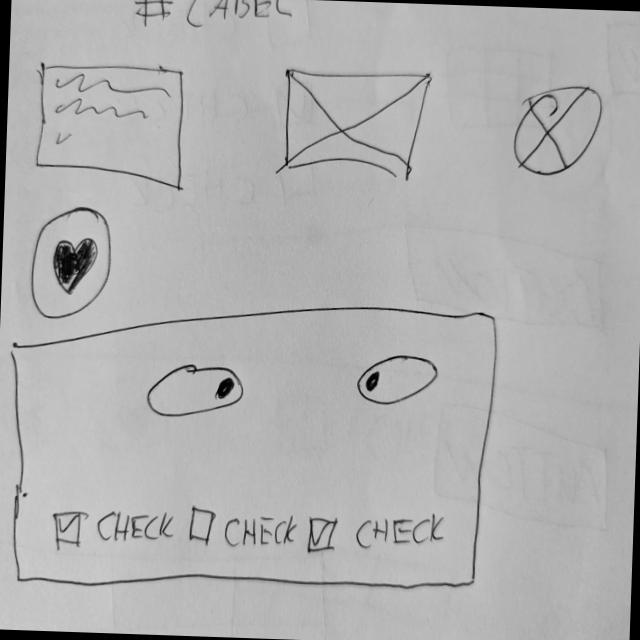 # LABEL
CHECK CHECK CHECK